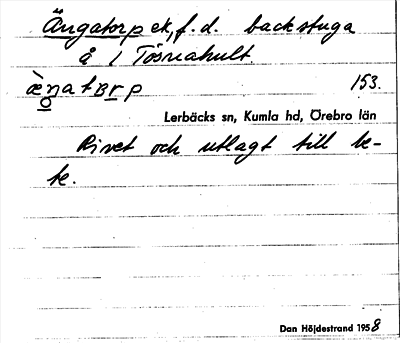 Ängatorp ek, f.d. backstuga
å 1 Tösnahult
153.
Lerbäcks sn, Kumla hd, Örebro län
Rivet och utlagt till be-
te.
Dan Höjdestrand 1958